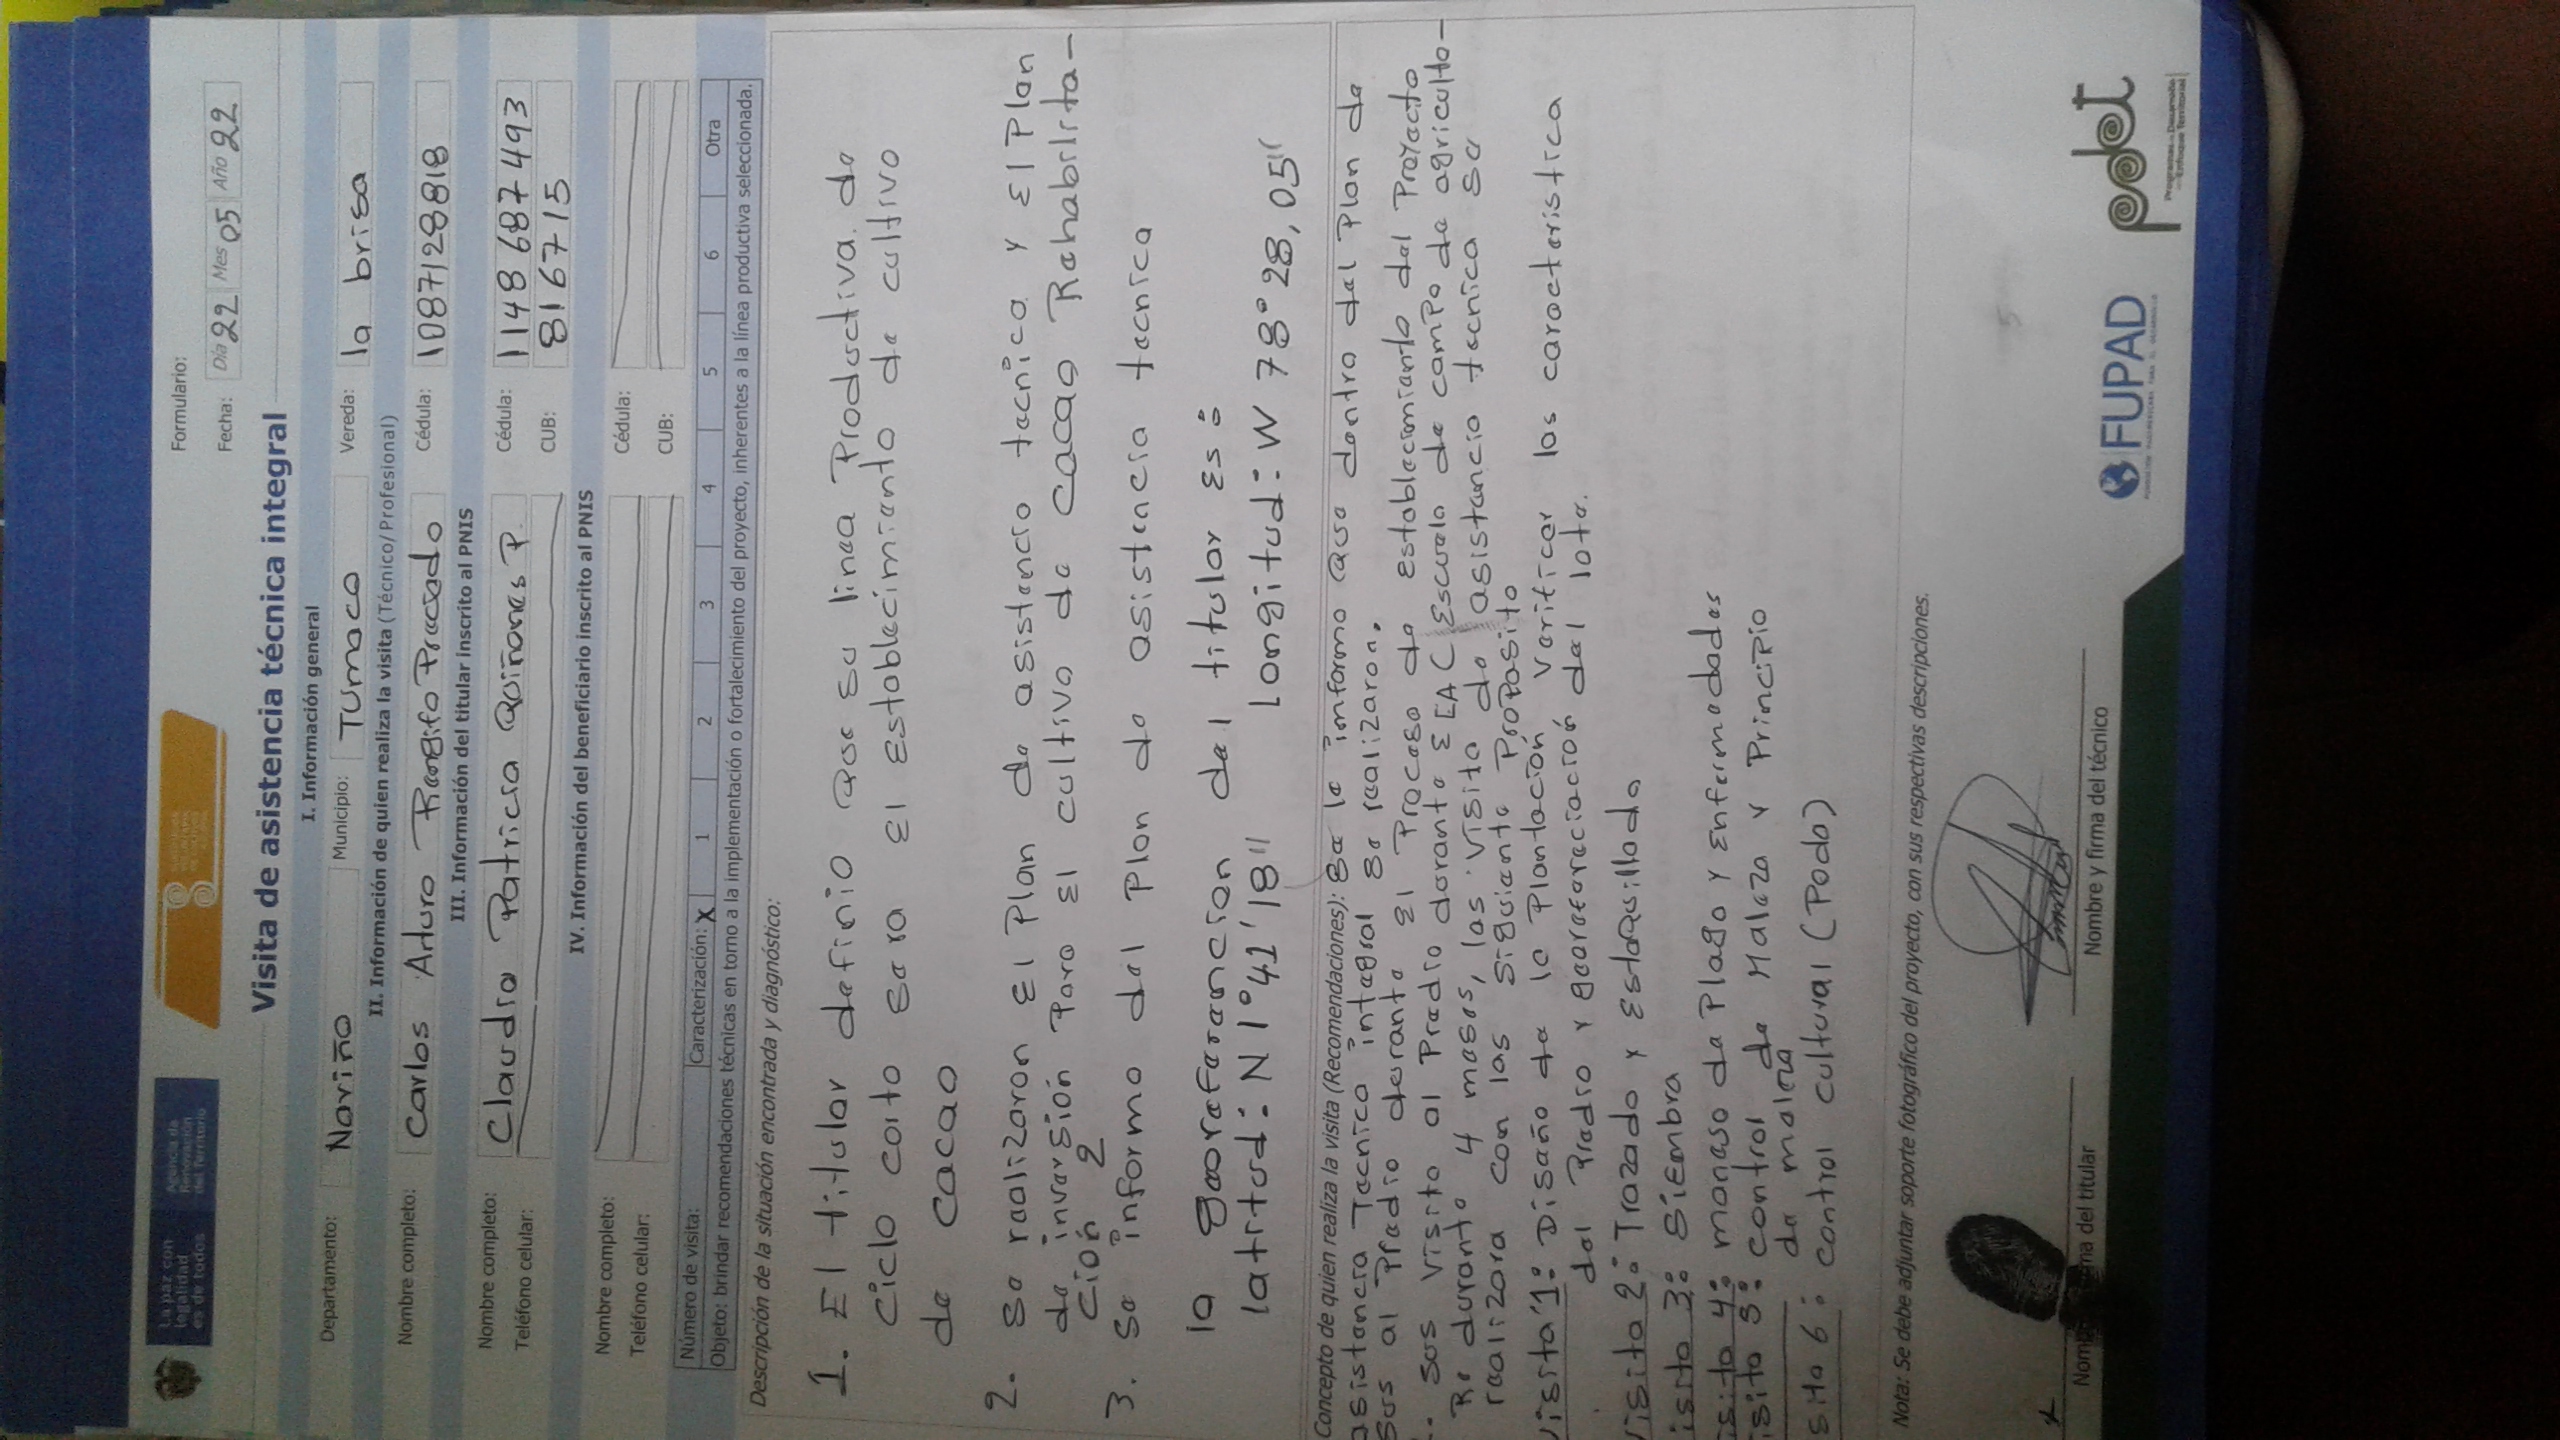 La paz con
legalidad
es de todos
Agencia de
Renovación
del Territorio
Formulario:
Fecha: Día 22 Mes 05 Año 22
Visita de asistencia técnica integral
I. Información general
Departamento: Nariño Municipio: Tumaco Vereda: la brisa
II. Información de quien realiza la visita (Técnico/ Profesional)
Nombre completo: Carlos Arturo Rengifo Preciado Cédula: 1087128818
III. Información del titular inscrito al PNIS
Nombre completo: Claudia Patricia Quiñones P. Cédula: 1148687493
Teléfono celular: CUB: 816715
IV. Información del beneficiario inscrito al PNIS
Nombre completo: Cédula:
Teléfono celular: CUB:
Número de visita: Caracterización: X 1 2 3 4 5 6 Otra
Objeto: brindar recomendaciones técnicas en torno a la implementación o fortalecimiento del proyecto, inherentes a la línea productiva seleccionada.
Descripción de la situación encontrada y diagnóstico:
1. El titular definio que su linea Productiva de
Ciclo corto sera El Establecimiento de cultivo
de cacao
2. Se realizaron El Plan de asistencia tecnica y El Plan
de inversión Para El cultivo de cacao Rehabilita-
ción 2
3. Se informo del Plan de asistencia tecnica
la georeferancion del titular Es:
latitud: N 1° 41' 18" longitud: W 78° 28, 05"
Concepto de quien realiza la visita (Recomendaciones): Se le informo que dentro del Plan de
asistencia Tecnico integral se realizaron.
sus al Predio durante El Proceso de establecimiento del Proyecto
. sus visita al Predio durante E[A ( Escuela de campo de agriculto-
Re durante 4 meses, las visita de asistencia tecnica se
realizara con las siguiente Proposito
Visita 1: Diseño de la Plantación Verificar las caracteristica
del Predio y georefereciación del lote.
Visita 2: Trazado y Estaquillado
isita 3: Siembra
isita 4: maneso de Plaga y Enfermedades
isita 5: control de Maleza y Principio
de maleza
sita 6: control cultural (Poda)
Nota: Se debe adjuntar soporte fotográfico del proyecto, con sus respectivas descripciones.
x
Nom ma del titular
Nombre y firma del técnico
FUPAD
pdet
Programas de Desarrollo
con Enfoque Territorial